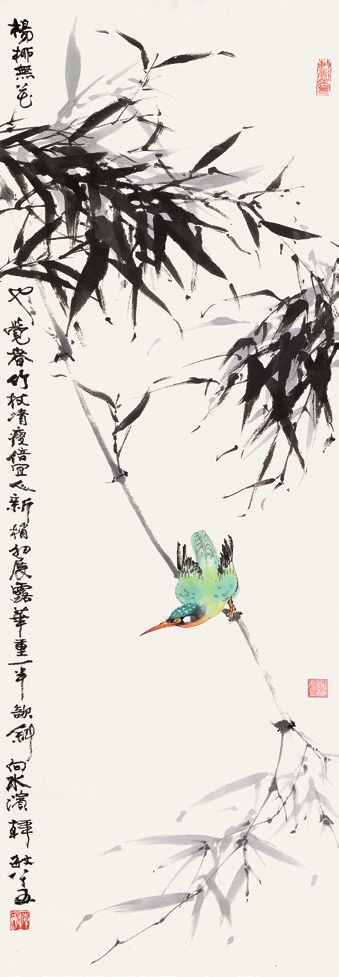 楊柳無花也覺春竹枝清瘦倍宜人新梢初展露華重一半欹斜向水濱韓敏